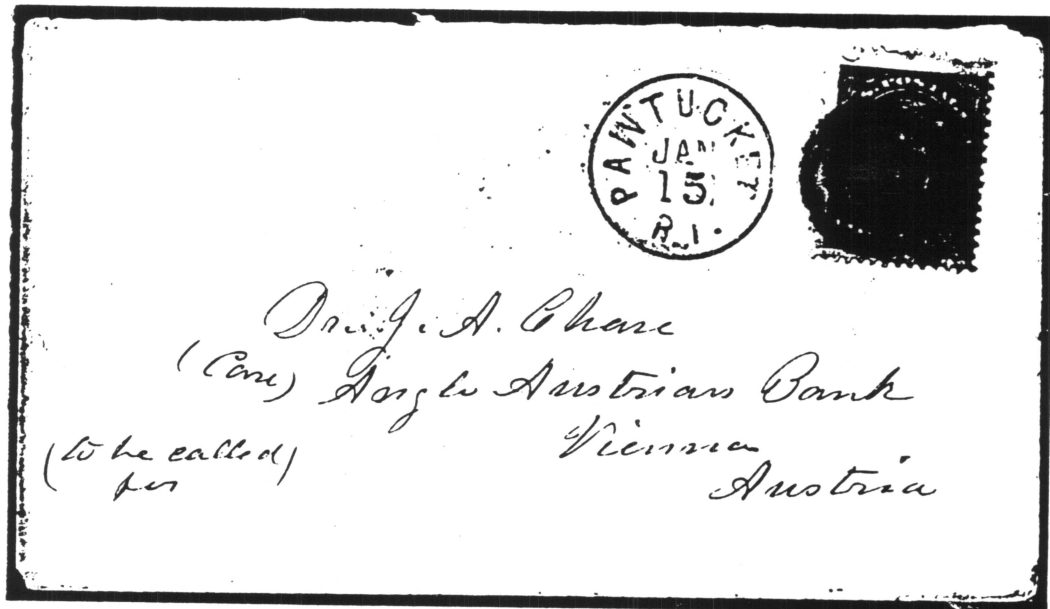 PAWTUCKET
JAN
15
R.I.
Dr. J. A. Chase
(Care) Anglo Austrian Bank
Vienna
Austria
(to be called)
for